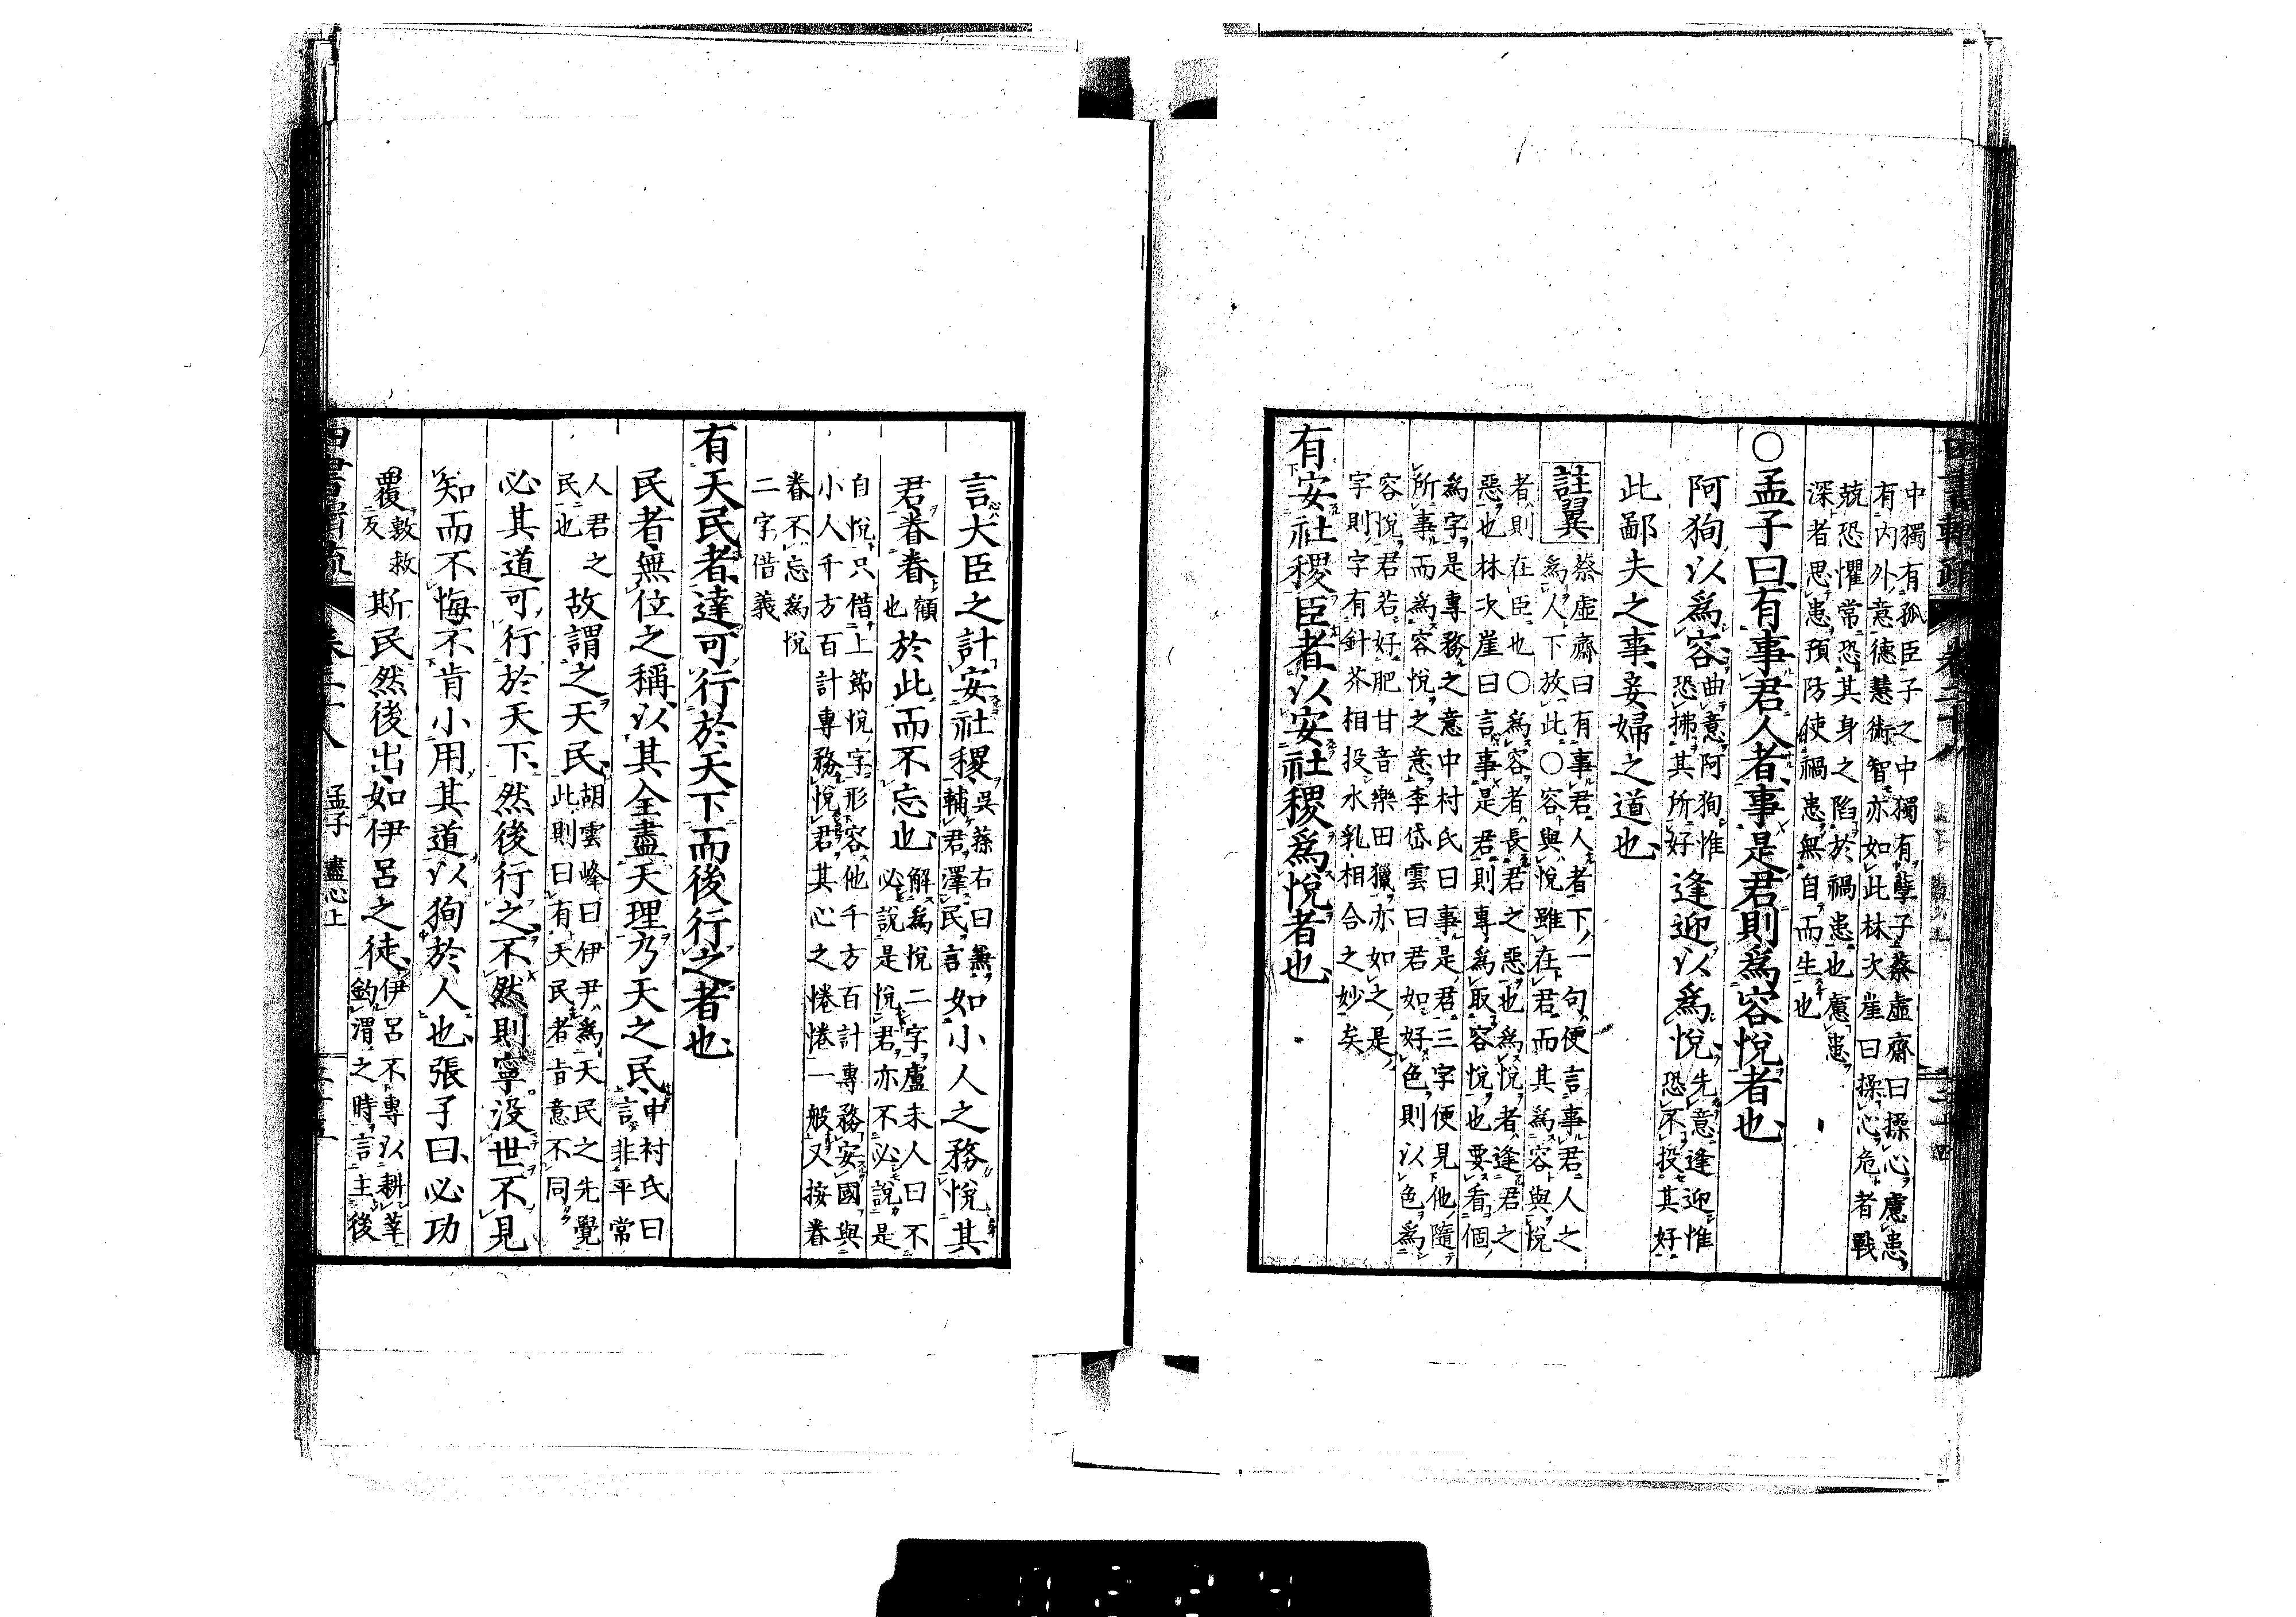 四書輯疏 卷二十八 二十四
中獨有孤臣子之中獨有孽子蔡虛齋曰操心慮患
有內外意德慧術智亦如此林次崖曰操心危者戰
兢恐懼常恐其身之陷於禍患也慮患
深者思患預防使禍患無自而生也
○孟子曰有事君人者事是君則爲容悅者也
阿狥以爲容曲意阿狥惟恐拂其所好逢迎以爲悅先意逢迎惟恐不投其好
此鄙夫之事妾婦之道也
註翼 蔡虛齋曰有事君人者下一句便言事君人之
爲人下放此○容與悅雖在君而其爲容與悅
者則在臣也○爲容者長君之惡也爲悅者逢君之
惡也林次崖曰言事是君則專爲取容悅也要看個
爲字是專務之意中村氏曰事是君三字便見他隨
所事而爲容悅之意李岱雲曰君如好色則以色爲
容悅君若好肥甘音樂田獵亦如之是
字則字有針芥相投水乳相合之妙矣
有安社稷臣者以安社稷爲悅者也
言大臣之計安社稷吳蓀右曰無輔君澤民言如小人之務悅其
君眷眷顧也於此而不忘也解爲悅二字盧未人曰不必說是悅君亦不必說是
自悅只借上節悅字形容他千方百計專務安國與
小人千方百計專務悅君其心之惓惓一般又按眷
眷不忘爲悅
二字借義
有天民者達可行於天下而後行之者也
民者無位之稱以其全盡天理乃天之民中村氏曰言非平常
人君之民也故謂之天民胡雲峰曰伊尹爲天民之先覺此則曰有天民者旨意不同
必其道可行於天下然後行之不然則寧沒世不見
知而不悔不肯小用其道以狥於人也張子曰必功
覆敷救反斯民然後出如伊呂之徒伊呂不專以耕莘釣渭之時言主後
四書輯疏 卷二十八 孟子 盡心上 二十五